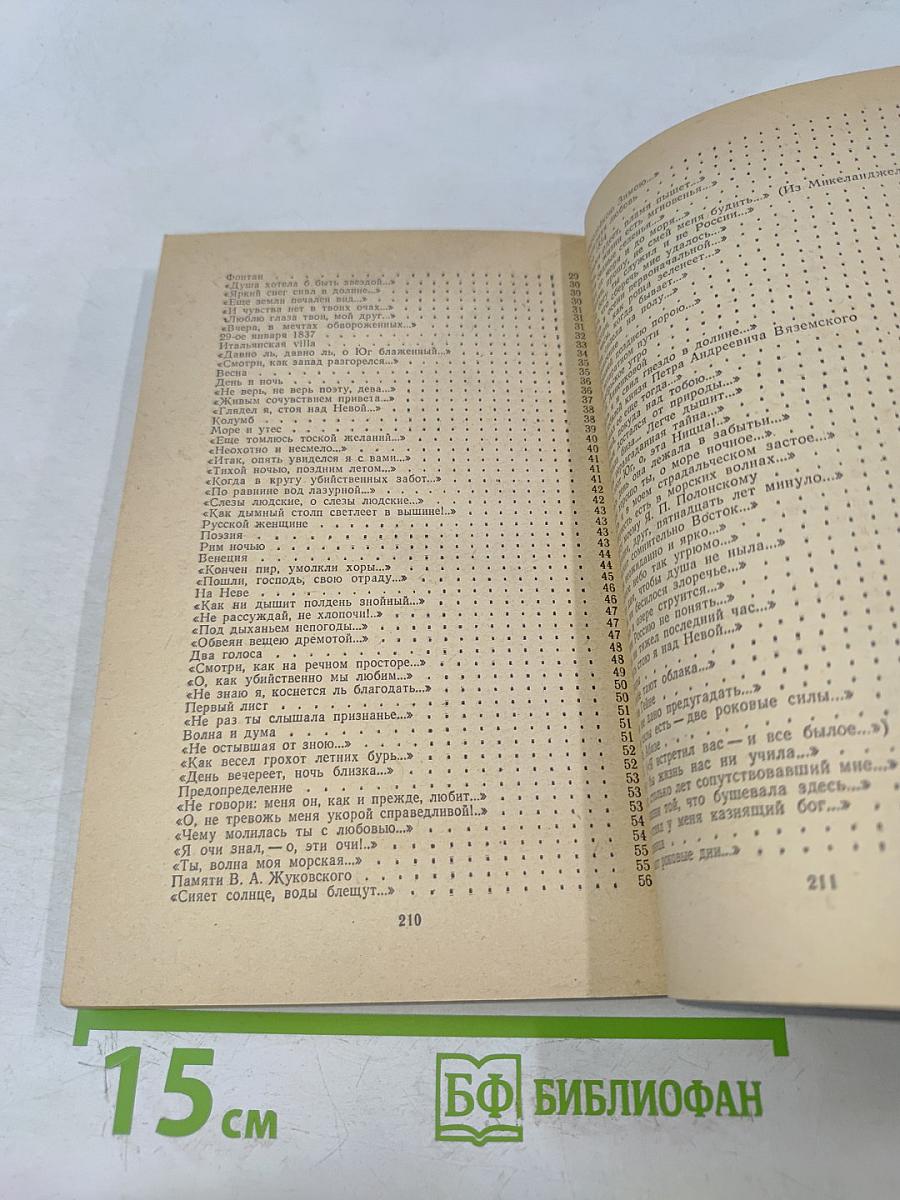 Фонтан 29
«Душа хотела б быть звездой...» 30
«Яркий снег сиял в долине...» 30
«Еще земли печален вид...» 30
«И чувства нет в твоих очах...» 31
«Люблю глаза твои, мой друг...» 31
«Вчера, в мечтах обвороженных...» 31
29-ое января 1837 32
Итальянская villa 33
«Давно ль, давно ль, о Юг блаженный...» 34
«Смотри, как запад разгорелся...» 35
Весна 35
День и ночь 36
«Не верь, не верь поэту, дева...» 36
«Живым сочувствием привета...» 37
«Глядел я, стоя над Невой...» 38
Колумб 38
Море и утес 39
«Еще томлюсь тоской желаний...» 40
«Неохотно и несмело...» 40
«Итак, опять увиделся я с вами...» 41
«Тихой ночью, поздним летом...» 41
«Когда в кругу убийственных забот...» 41
«По равнине вод лазурной...» 42
«Слезы людские, о слезы людские...» 42
«Как дымный столп светлеет в вышине!..» 43
Русской женщине 43
Поэзия 43
Рим ночью 43
Венеция 44
«Кончен пир, умолкли хоры...» 44
«Пошли, господь, свою отраду...» 45
На Неве 46
«Как ни дышит полдень знойный...» 46
«Не рассуждай, не хлопочи!..» 47
«Под дыханьем непогоды...» 47
«Обвеян вещею дремотой...» 47
Два голоса 48
«Смотри, как на речном просторе...» 48
«О, как убийственно мы любим...» 49
«Не знаю я, коснется ль благодать...» 50
Первый лист 50
«Не раз ты слышала признанье...» 51
Волна и дума 51
«Не остывшая от зною...» 51
«Как весел грохот летних бурь...» 52
«День вечереет, ночь близка...» 52
Предопределение 53
«Не говори: меня он, как и прежде, любит...» 53
«О, не тревожь меня укорой справедливой!..» 53
«Чему молилась ты с любовью...» 54
«Я очи знал, — о, эти очи!..» 54
«Ты, волна моя морская...» 55
Памяти В. А. Жуковского 55
«Сияет солнце, воды блещут...» 56
210
Зимою...»
любовь
пламя пышет...»
есть мгновенья...»
и до моря...»
не смей меня будить...» (Из Микеланджел
служил и не России...»
сберечь мне удалось...»
первоначальной...»
как роща зеленеет...»
когда бывает...»
на полу...»
позднею порою...»
пути
утро
свил гнездо в долине...»
князя Петра Андреевича Вяземского
еще тогда...»
над тобою...»
достался от природы...»
Легче дышит...»
тайна...»
Юг, о, эта Ницца!..»
она лежала в забытьи...»
ты, о море ночное...»
в моем страдальческом застое...»
есть в морских волнах...»
Я. П. Полонскому
друг, пятнадцать лет минуло...»
сомнительно Восток...»
и ярко...»
небо так угрюмо...»
чтобы душа не ныла...»
бесилося злоречье...»
озере струится...»
Россию не понять...»
тяжел последний час...»
стою я над Невой...»
тают облака...»
дано предугадать...»
есть — две роковые силы...»
встретил вас — и все былое...»)
жизнь нас ни учила...»
лет сопутствовавший мне...»
той, что бушевала здесь...»
у меня казнящий бог...»
роковые дни...»
211
15 см
БФ БИБЛИОФАН